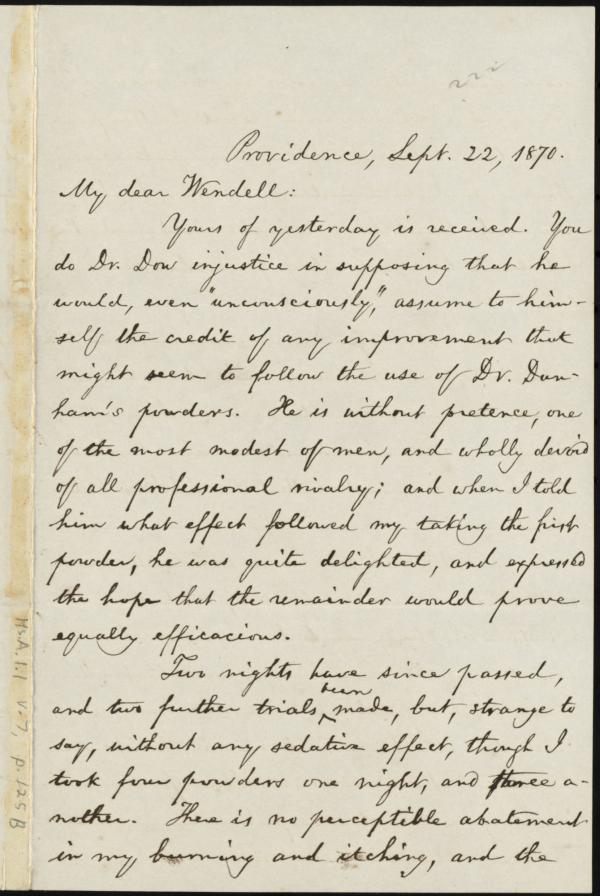 Providence, Sept. 22, 1870.
My dear Wendell:
Yours of yesterday is received. You
do Dr. Dow injustice in supposing that he
would, even "unconsciously," assume to him-
self the credit of any improvement that
might seem to follow the use of Dr. Dun-
ham's powders. He is without pretence, one
of the most modest of men, and wholly devoid
of all professional rivalry; and when I told
him what effect followed my taking the first
powder, he was quite delighted, and expressed
the hope that the remainder would prove
equally efficacious.
Two nights have since passed,
and two further trials been made, but, strange to
say, without any sedative effect, though I
took four powders one night, and three a-
nother. There is no perceptible abatement
in my burning and itching, and the
Ms.A.1.1 V.7, p.125B